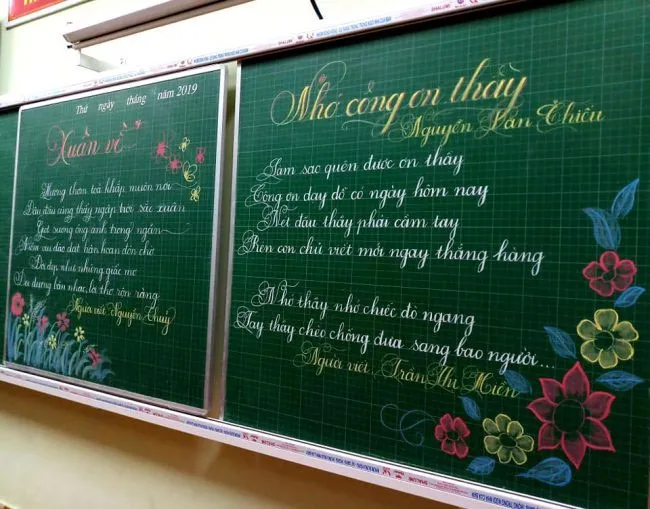 Thứ ngày tháng năm 2019
Xuân về
Hương thơm toả khắp muôn nơi
Đâu đâu cũng thấy ngập trời sắc xuân
Giọt sương óng ánh trong ngần
Niềm vui dào dạt hân hoan đón chờ
Đời đẹp như những giấc mơ
Du dương âm nhạc, lời thơ rộn ràng
Người viết: Nguyễn Thuý
Nhớ công ơn thầy
Nguyễn Văn Thiều
Làm sao quên được ơn thầy
Công ơn dạy dỗ có ngày hôm nay
Nét đầu thầy phải cầm tay
Rèn con chữ viết mới ngay thẳng hàng
Nhớ thầy nhớ chiếc đò ngang
Tay thầy chèo chống đưa sang bao người...
Người viết: Trần Thu Hiền